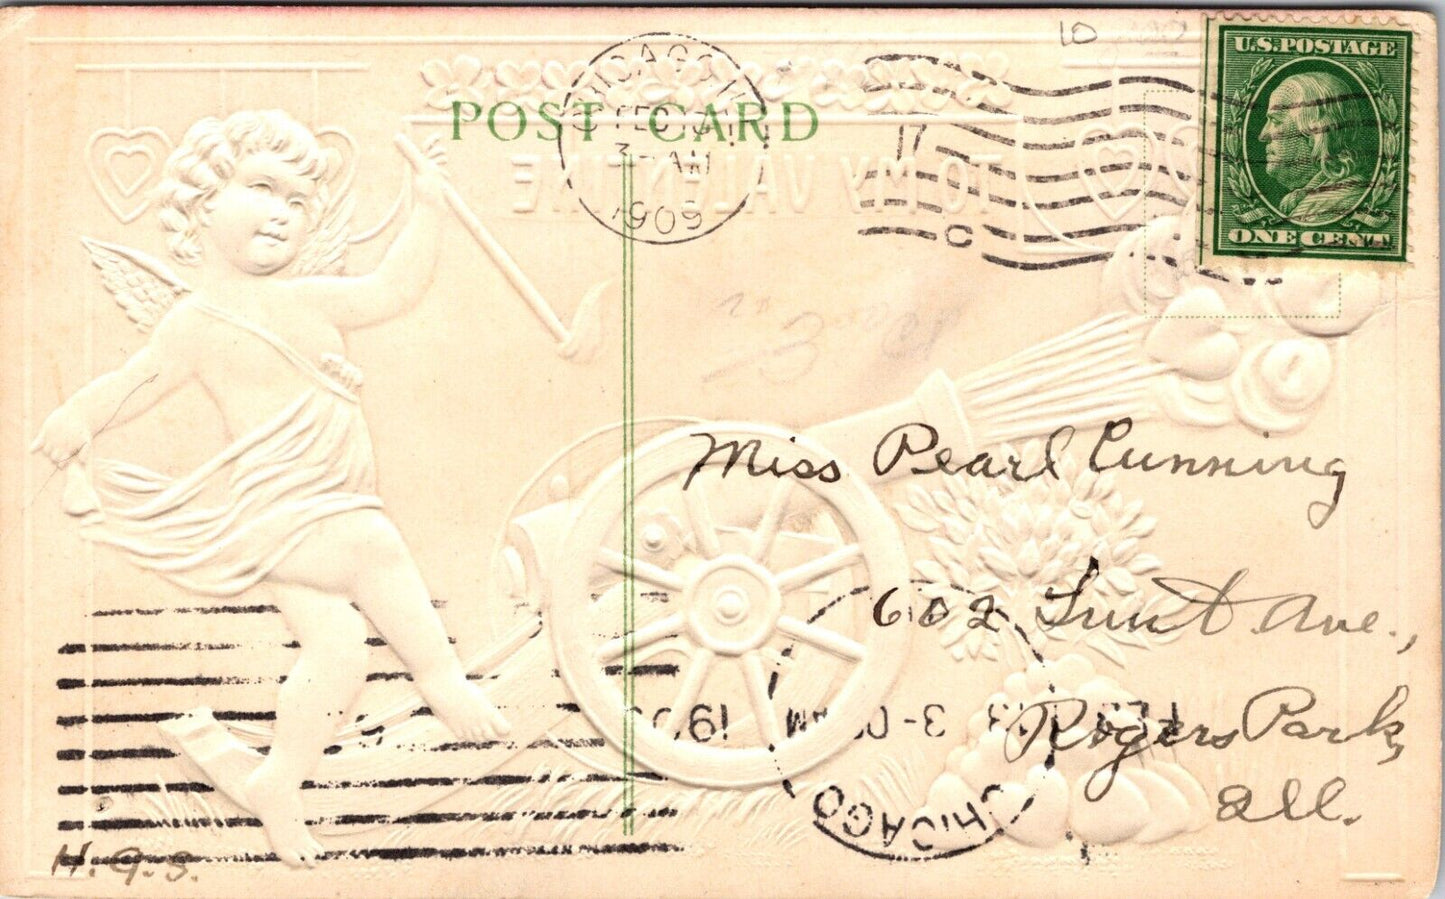 10
U.S.POSTAGE
ONE CENT
CHICAGO, ILL.
FEB 13
3-AM
1909
17
C
POST CARD
TO MY VALENTINE
Miss Pearl Cunning
602 Lunt Ave.,
Rogers Park,
Ill.
CHICAGO
FEB 13 3-0 AM 1909
H.G.S.